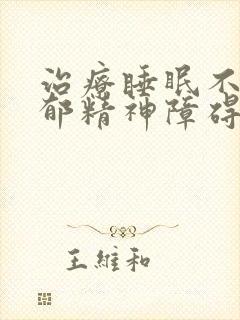 治療睡眠不
郁精神障碍
王維和